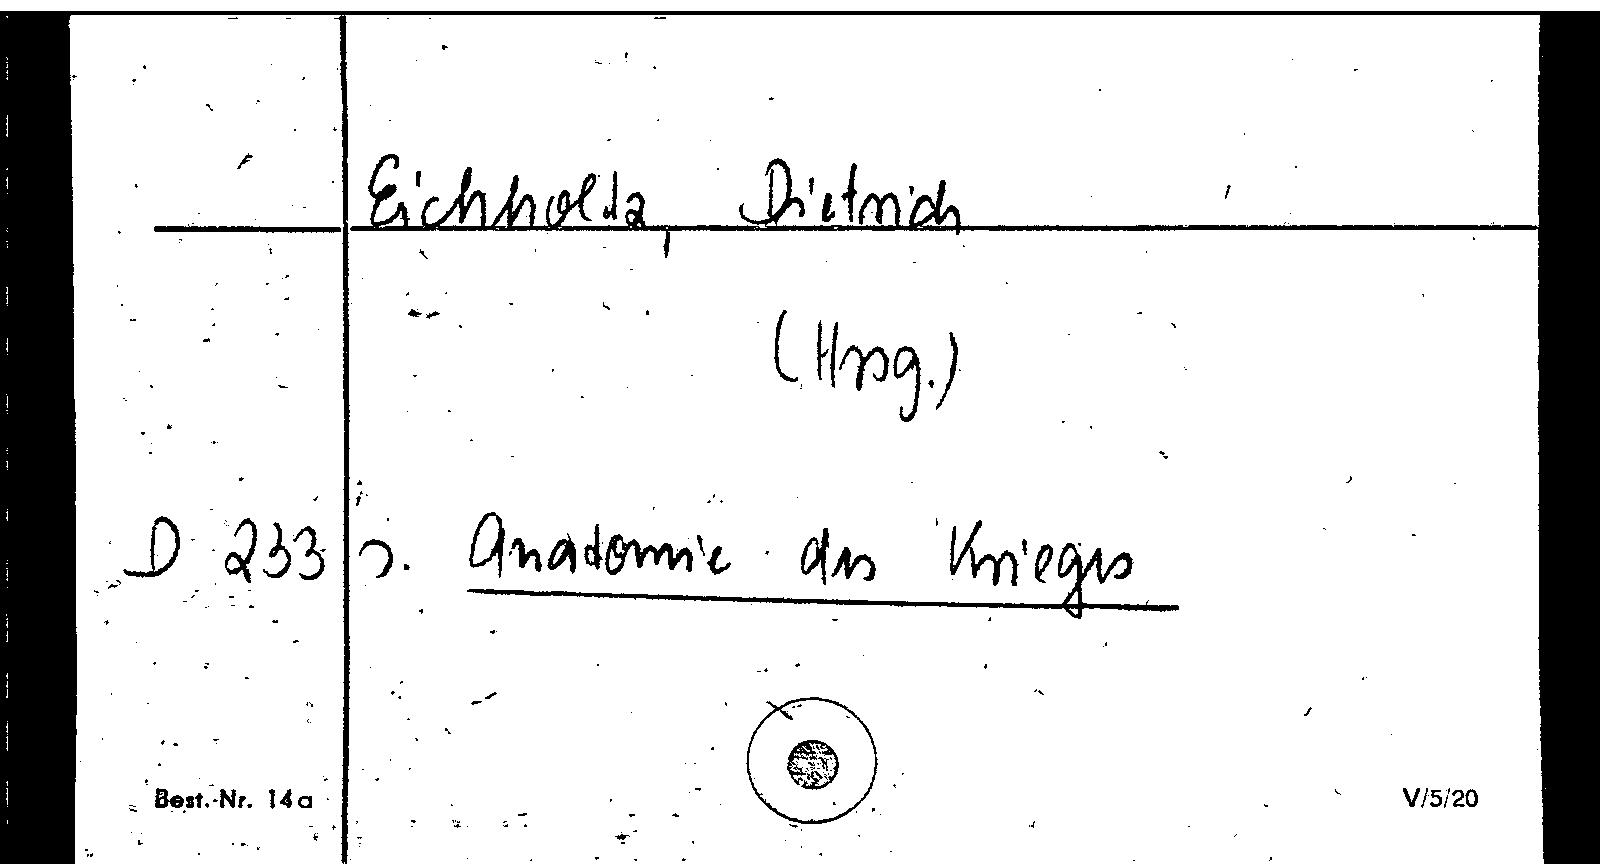 Eichholtz, Dietrich
(Hrsg.)
D 233 s. Anatomie des Krieges
Best.-Nr. 14a V/5/20